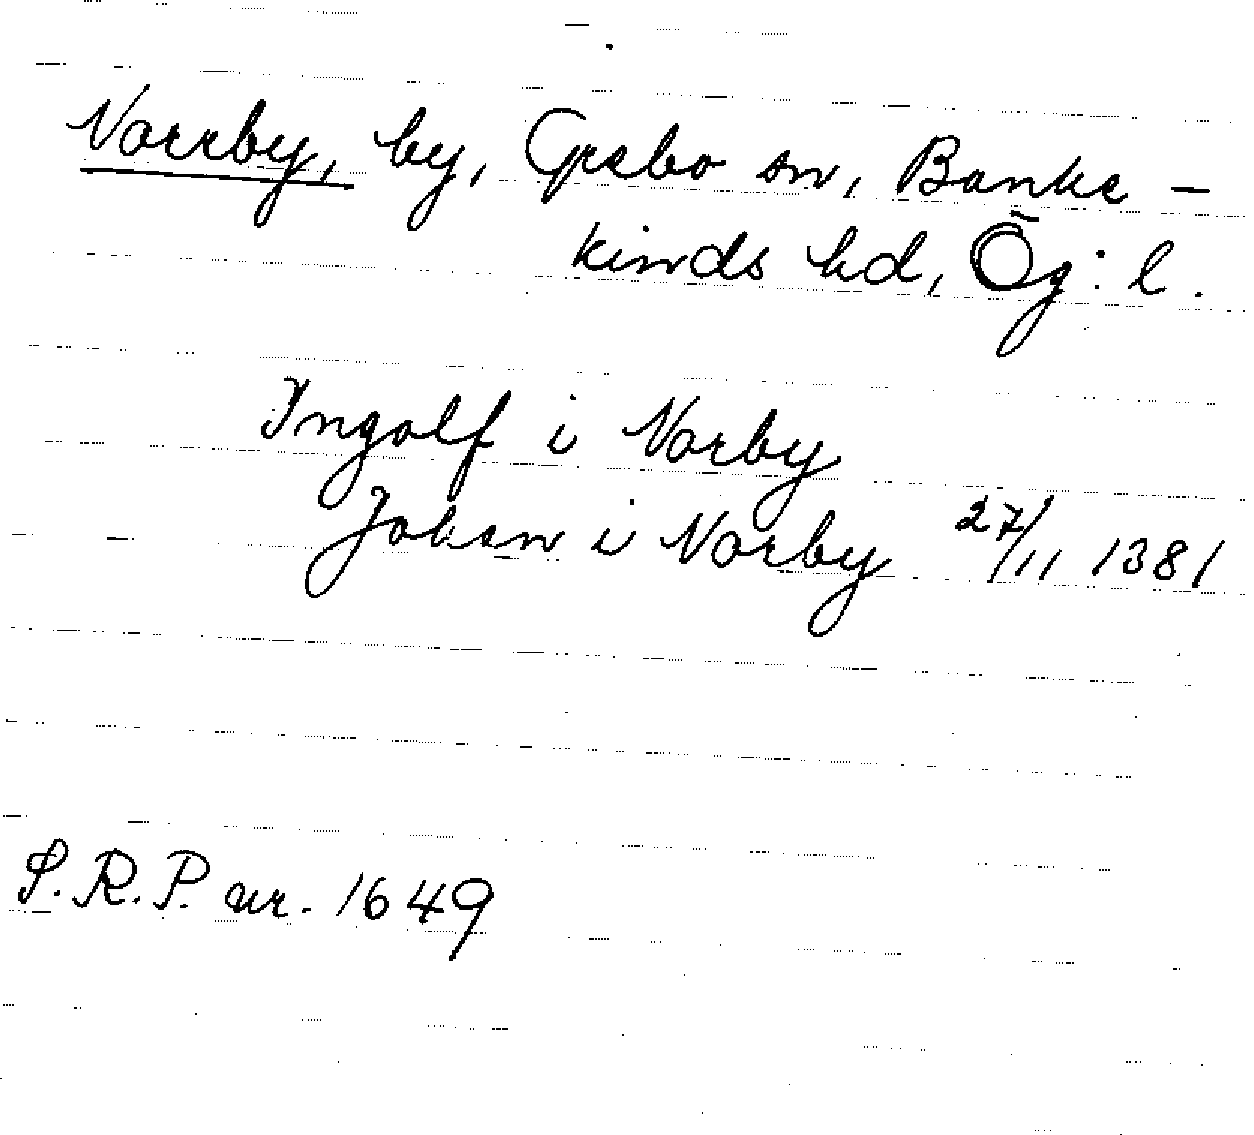 Norrby, by, Grebo sn, Banke-
kinds hd, Ög: l.
Ingolf i Norby
Johan i Norby 27/11 1381
S.R.P. nr. 1649